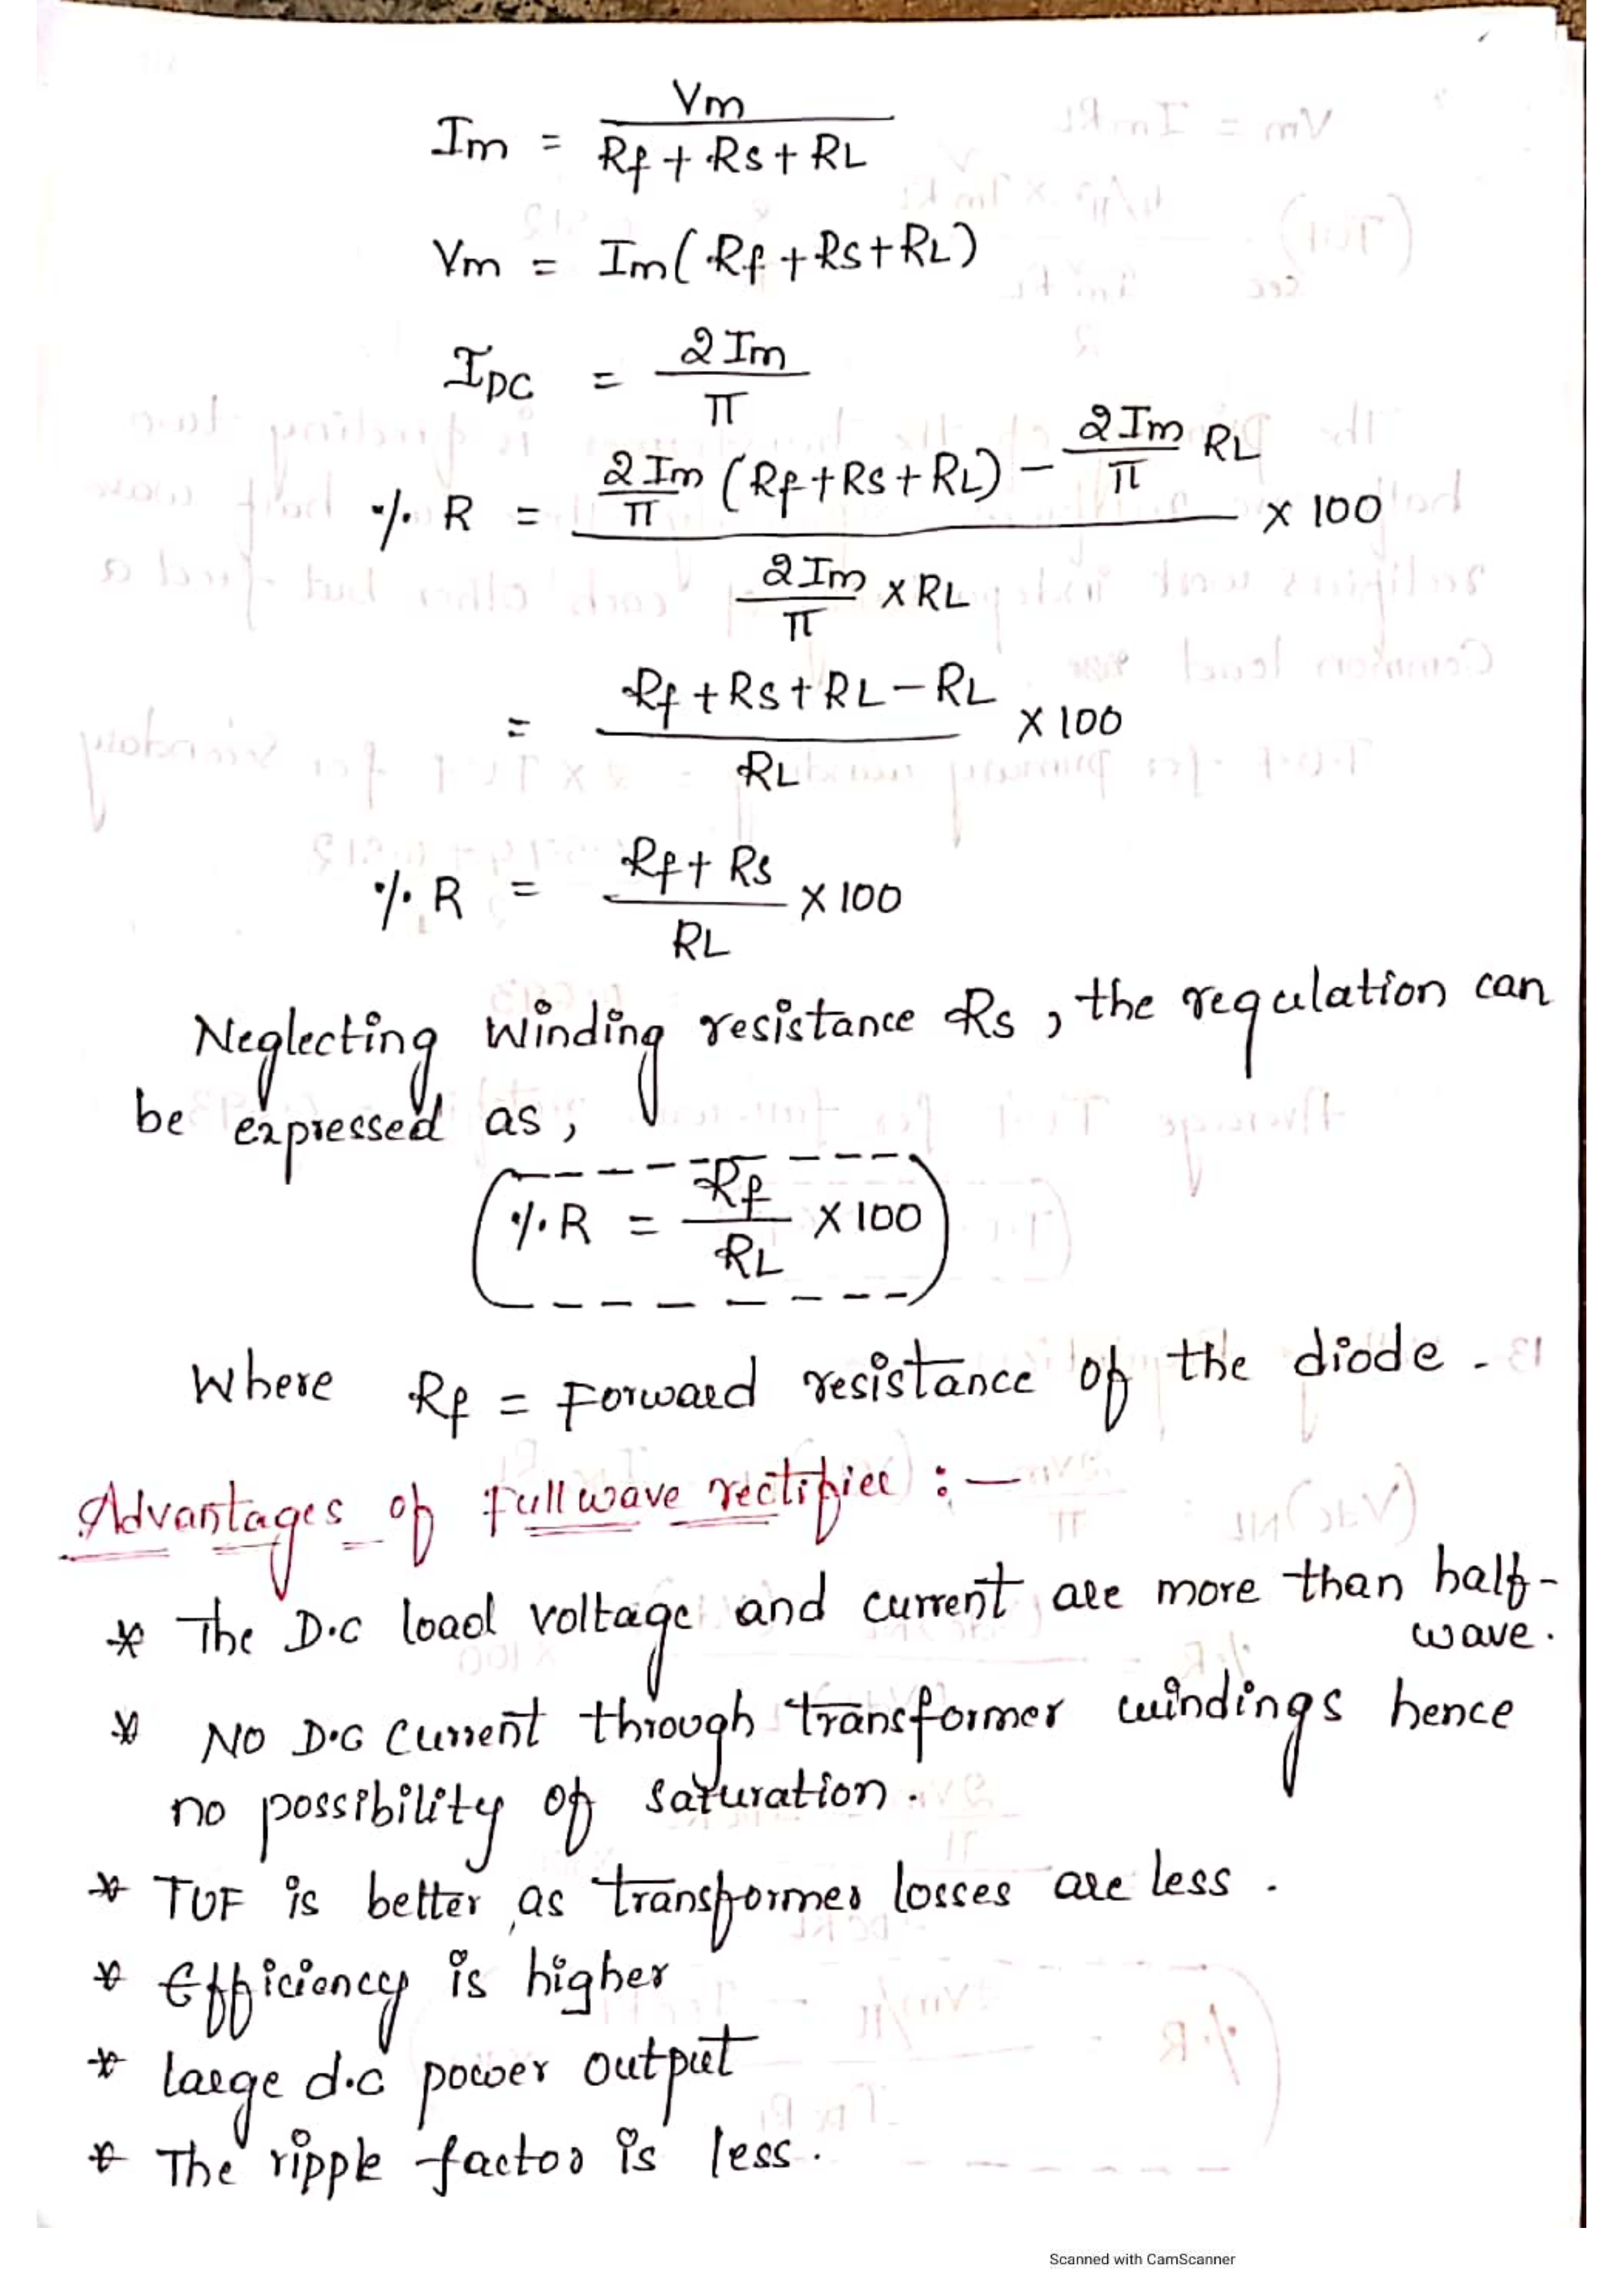 Im = Vm / Rf + Rs + RL
Vm = Im ( Rf + Rs + RL )
IDC = 2 Im / π
% R = 2 Im / π ( Rf + Rs + RL ) - 2 Im / π RL / 2 Im / π × RL × 100
= Rf + Rs + RL - RL / RL × 100
% R = Rf + Rs / RL × 100
Neglecting winding resistance Rs , the regulation can
be expressed as ,
% R = Rf / RL × 100
Where Rf = Forward resistance of the diode .
Advantages of full wave rectifier : -
* The D.C load voltage and current are more than half-
wave .
* NO D.C current through transformer windings hence
no possibility of saturation .
* TUF is better as transformer losses are less .
* Efficiency is higher
* large d.c power output
* The ripple factor is less .
Scanned with CamScanner